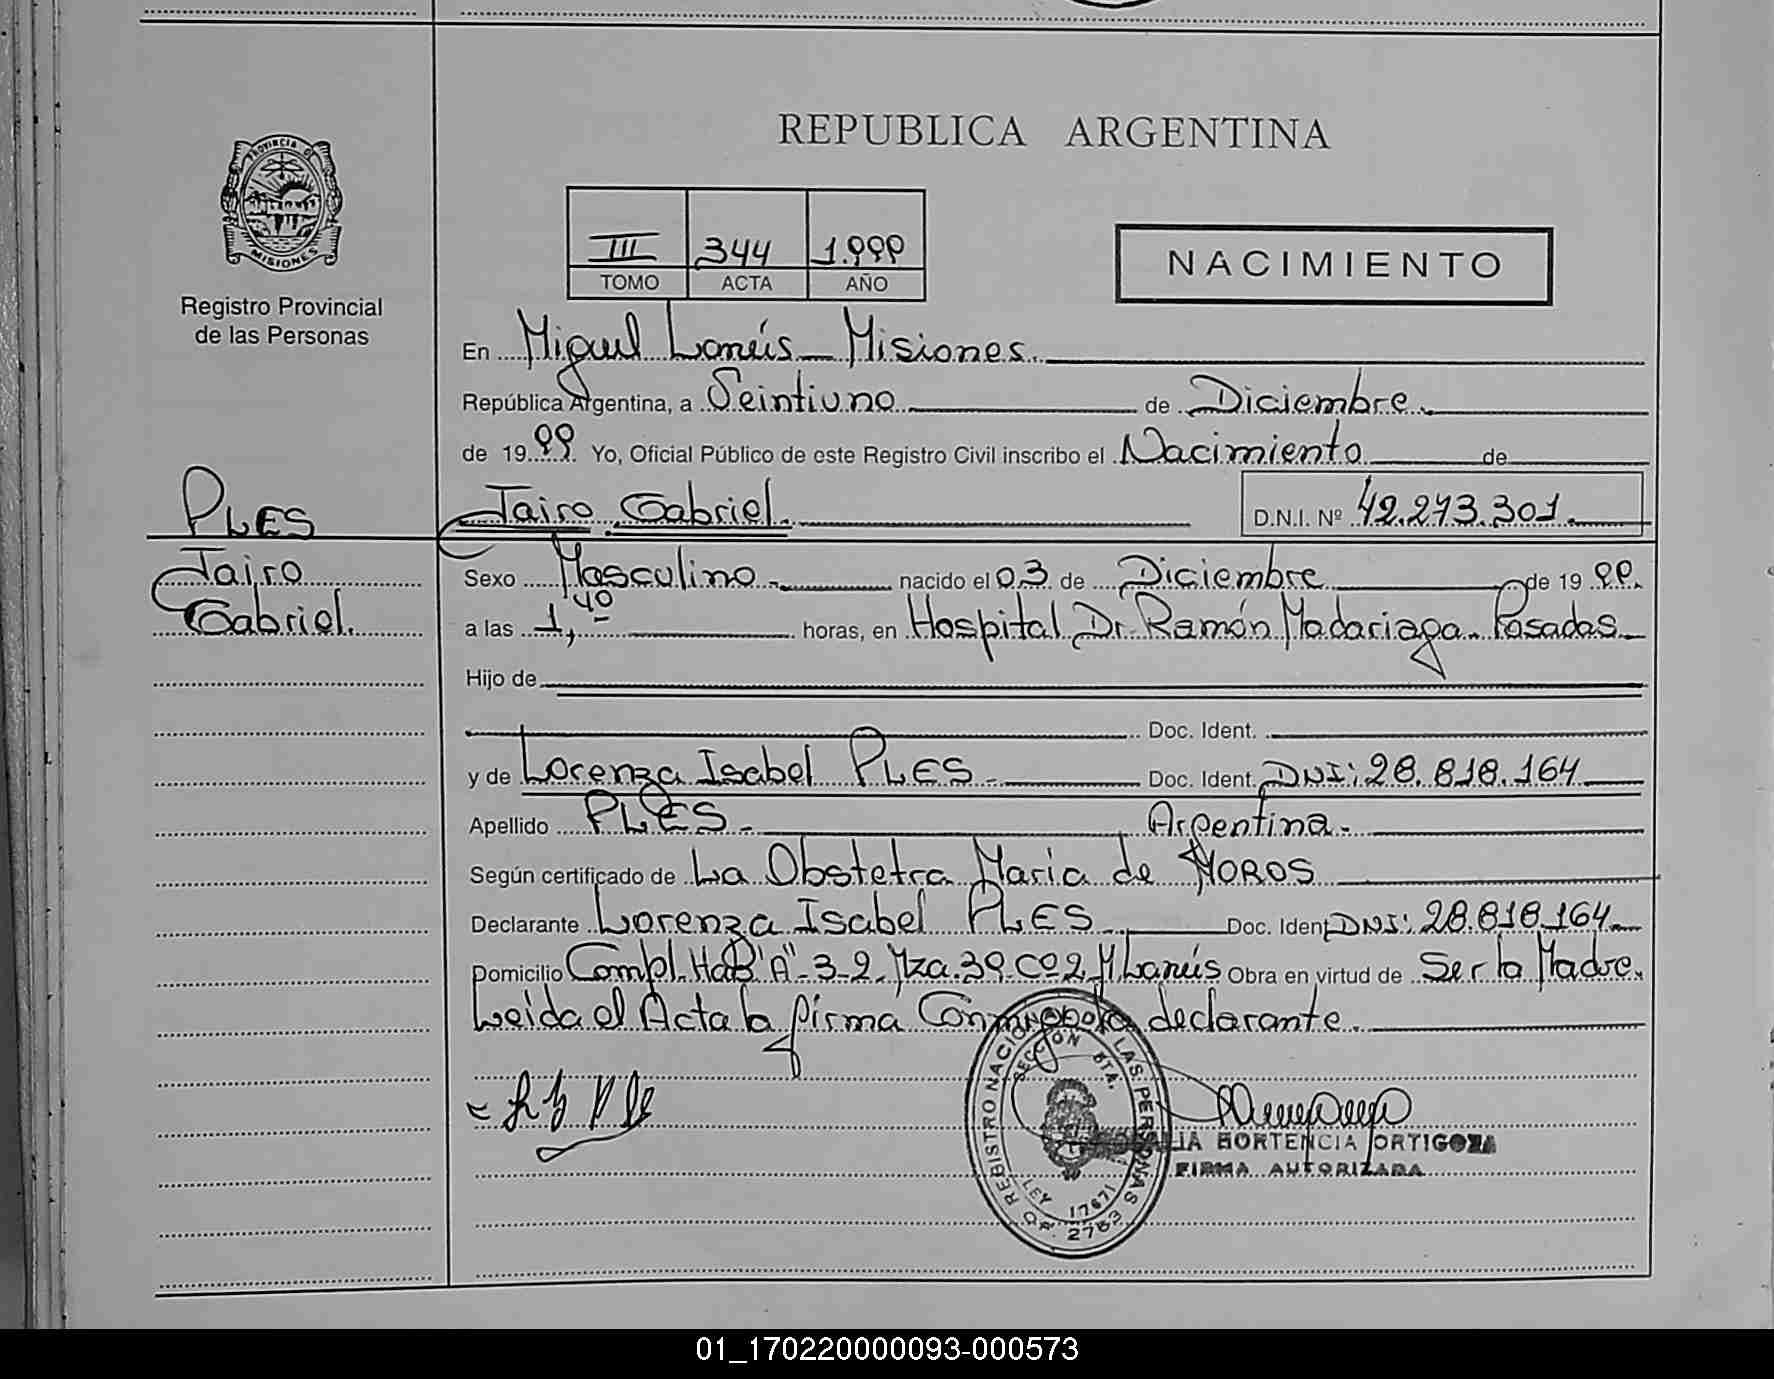 REPUBLICA ARGENTINA
PROVINCIA DE
MISIONES
Registro Provincial
de las Personas
III 344 1.999
TOMO ACTA AÑO
NACIMIENTO
En Miguel Lanús - Misiones.
República Argentina, a Veintiuno de Diciembre.
de 1999. Yo, Oficial Público de este Registro Civil inscribo el Nacimiento de
PLES
Jairo Gabriel. D.N.I. Nº 42.273.301.
Jairo
Gabriel.
Sexo Masculino. nacido el 03 de Diciembre de 1999.
a las 1,40 horas, en Hospital Dr. Ramón Madariaga. Posadas
Hijo de
Doc. Ident.
y de Lorenza Isabel PLES. Doc. Ident. DNI: 28.818.164
Apellido PLES. Argentina.
Según certificado de La Obstetra Maria de MOROS
Declarante Lorenza Isabel PLES Doc. Ident. DNI: 28.818.164
Domicilio Compl. HaB "A" - 3-2. Mza. 39. Cº 2 M Lanús Obra en virtud de Ser la Madre.
Leida el Acta la firma Conmigo la declarante.
REGISTRO NACIONAL DE LAS PERSONAS
SECCION
LEY 17671
OF. 2763
LIA HORTENCIA ORTIGOZA
FIRMA AUTORIZADA
01_170220000093-000573